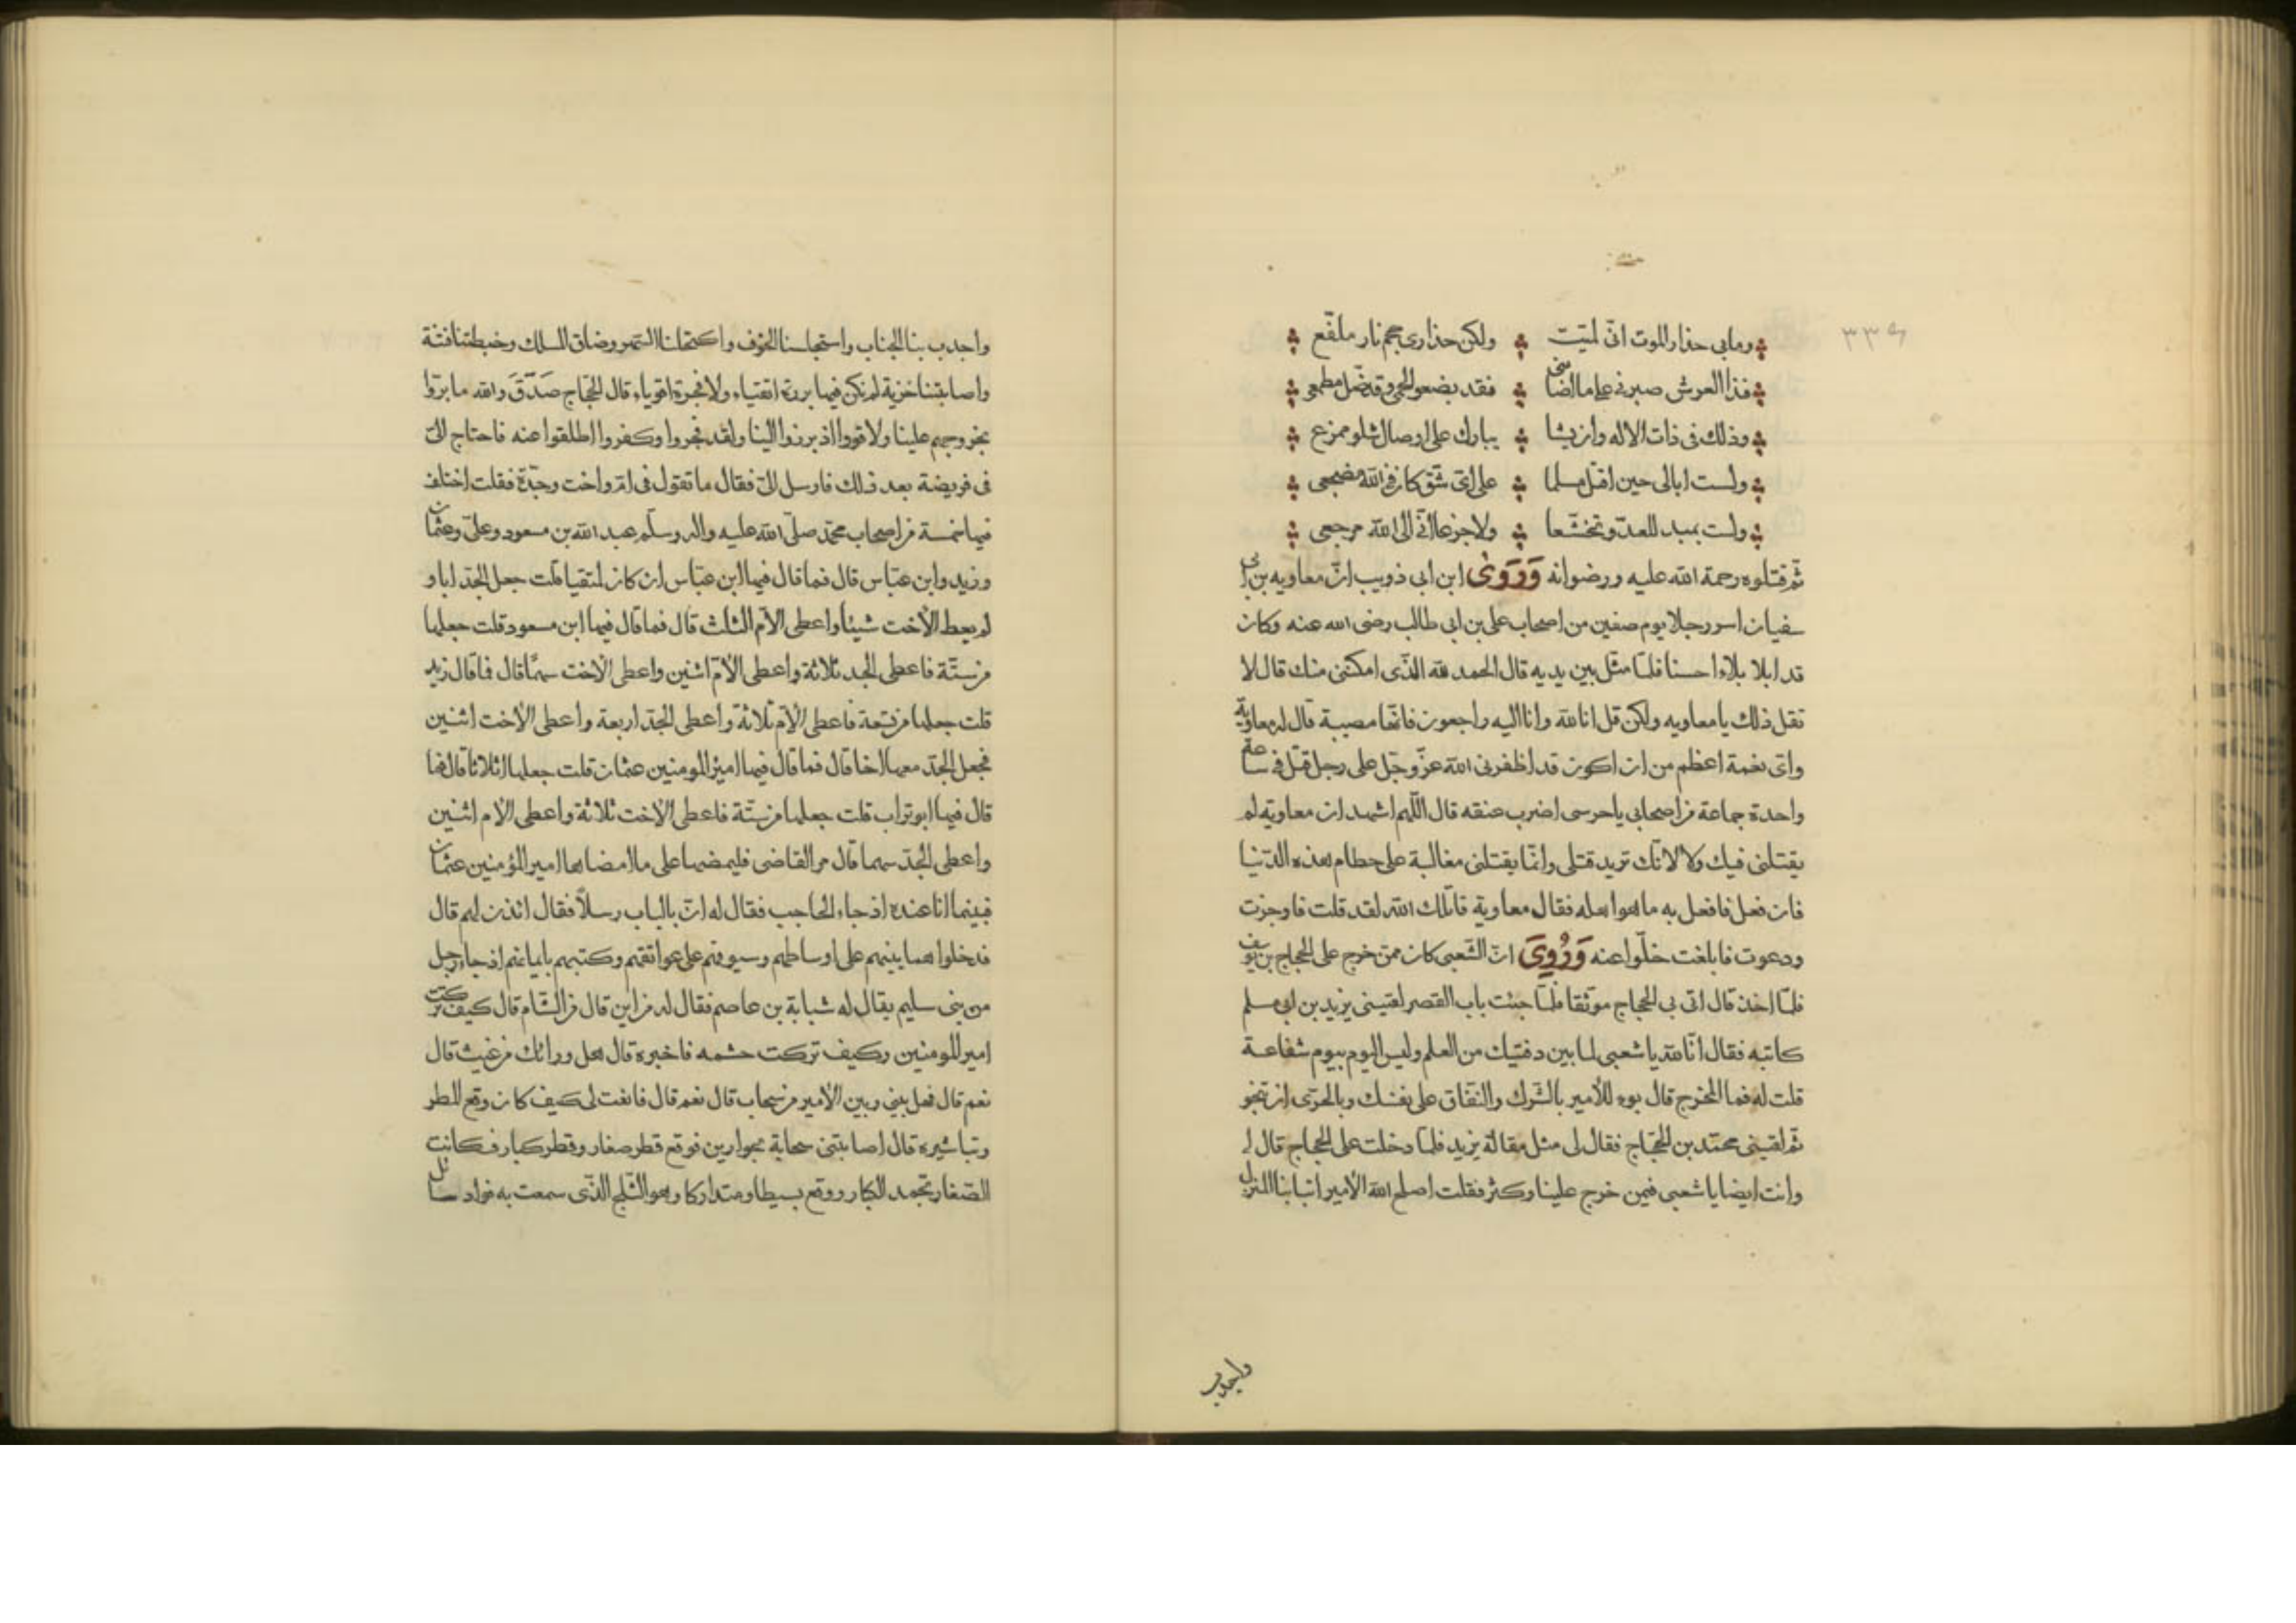 ٣٣٩
وما بي حذار الموت انّى لميّت ولكن حذارى جحم نار ملفّع
فذا العرش صبرني على ما اصابنى فقد بضعوا لحمي وقد ضل مطمعى
وذلك فى ذات الاله وان يشا يبارك على اوصال شلو ممزع
ولست ابالى حين اقتل مسلما على اىّ شق كان فى الله مضجعى
ولست بمبد للعدّو تخشّعا ولا جزعا انّى الى الله مرجعى
ثم قتلوه رحمة الله عليه ورضوانه وَرَوَىٰ ابن ابى ذويب انّ معاويه بن ابى
سفيان اسر رجلا يوم صفين من اصحاب على بن ابى طالب رضى الله عنه وكان
قد ابلا بلاءا حسنا فلمّا مثّل بين يديه قال الحمد لله الذّى امكننى منك قال لا
تقل ذلك يا معاويه ولكن قل انا لله وانا اليه راجعون فانّها مصيبة قال له معاوية
واىّ نعمة اعظم من ان اكون قد اظفرنى الله عزّ وجّل على رجل قتل فى ساعة
واحدة جماعة من اصحابى يا حرسى اضرب عنقه قال اللّهم اشهد ان معاويه لم
يقتلنى فيك ولا لانّك تريد قتلى وانّما يقتلنى مغالبة على حطام هذه الدّنيا
فان فعل فافعل به ما هو اهله فقال معاوية قاتلك الله لقد قلت فاوجزت
ودعوت فابلغت خلّوا عنه وَرُوِىَ انّ الشّعبى كان ممّن خرج على الحجاج بن يوسف
فلمّا اخذ قال اتى بى الحجاج موثقا فلمّا جئت باب القصر لقينى يزيد بن ابى مسلم
كاتبه فقال انّا لله يا شعبى لما بين دفتيك من العلم وليس اليوم بيوم شفاعة
قلت له فما المخرج قال بوء للأمير بالشّرك والنّفاق على نفسك وبالحرّى ان تنجو
ثم لقينى محمّد بن الحجّاج فقال لى مثل مقالة يزيد فلمّا دخلت على الحجاج قال لى
وانت ايضا يا شعبى فيمن خرج علينا وكثر فقلت اصلح الله الأمير انبا بنا المنزل
واجدب
واجدب بنا الجناب واستحلسنا الخوف واكتحلنا السّهر وضاق المسلك وخبطتنا فتنة
واصابتنا خزية لم نكن فيها بررة اتقياء ولا فجرة اقوياء قال الحجّاج صَدَقَ والله ما برّوا
بخروجهم علينا ولا قووا اذ برزوا الينا ولقد فجروا وكفروا اطلقوا عنه فاحتاج الىّ
فى فريضة بعد ذلك فارسل الىّ فقال ما تقول فى امّ واخت وجدّة فقلت اختلف
فيها خمسة من اصحاب محمّد صلّى الله عليه واله وسلّم عبد الله بن مسعود وعلىّ وعثمان
وزيد وابن عبّاس قال فما قال فيها ابن عبّاس ان كان لمتقيا قلت جعل الجدّ ابا و
لم يعط الأخت شيئا واعطى الأمّ الثلث قال فما قال فيها ابن مسعود قلت جعلها
من ستّة فاعطى الجد ثلاثة واعطى الأمّ اثنين واعطى الأخت سهمًا قال فما قال زيد
قلت جعلها من تسعة فاعطى الأمّ ثلاثة واعطى الجدّ اربعة واعطى الأخت اثنين
فجعل الجدّ معها اخا قال فما قال فيها امير المومنين عثمان قلت جعلها اثلاثا قال فما
قال فيها ابو تراب قلت جعلها من ستّة فاعطى الأخت ثلاثة واعطى الأم اثنين
واعطى الجدّ سهما قال مر القاضى فليمضها على ما امضاها امير المؤمنين عثمان
فبينما انا عنده اذ جاء الحاجب فقال له انّ بالباب رسلاً فقال ائذن لهم قال
فدخلوا عمايمهم على اوساطهم وسيوفهم على عواتقهم وكتبهم بايمانهم اذ جاء رجل
من بنى سليم يقال له شبابة بن عاصم فقال له من اين قال من الشّام قال كيف تركت
امير المومنين وكيف تركت حشمه فاخبره قال هل ورائك من غيث قال
نعم قال فهل بينى وبين الأمير من سحاب قال نعم قال فانعت لى كيف كان وقع المطر
وتباشيره قال اصابتنى سحابة بحوارين فوقع قطر صغار وقطر كبار فكانت
الصّغار تجمد الكبار ووقع بسيطا ومتداركا وهو الثّلج الذّى سمعت به فواد سائل